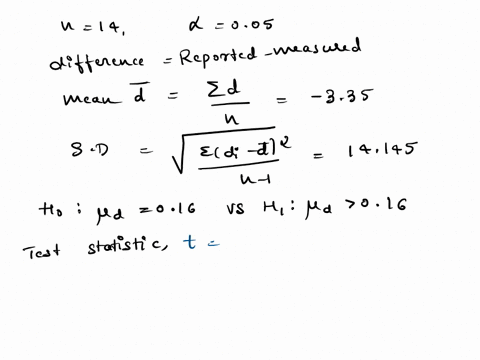 n = 14, α = 0.05
difference = Reported - measured
mean d̅ = Σd / n = -3.35
S.D = √(Σ(di - d̅)² / n-1) = 14.145
H₀ : μd = 0.16 vs H₁ : μd > 0.16
Test statistic, t =